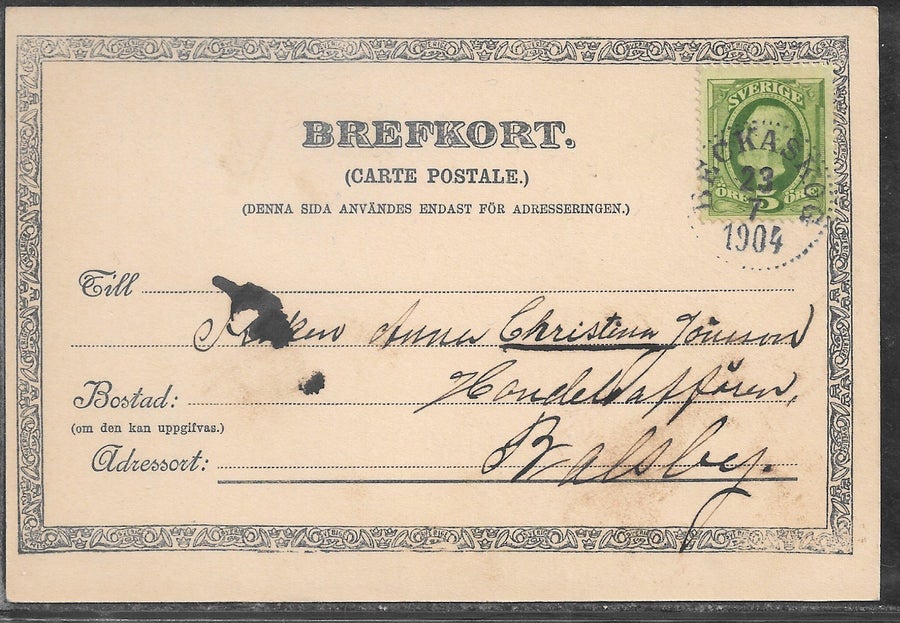 BREFKORT.
(CARTE POSTALE.)
(DENNA SIDA ANVÄNDES ENDAST FÖR ADRESSERINGEN.)
SVERIGE
ÖRE 5 ÖRE
BECKASKOG
23
7
1904
Till
Anna Christina Jönsson
Bostad:
Handelsaffären,
(om den kan uppgifvas.)
Adressort:
Balsby.